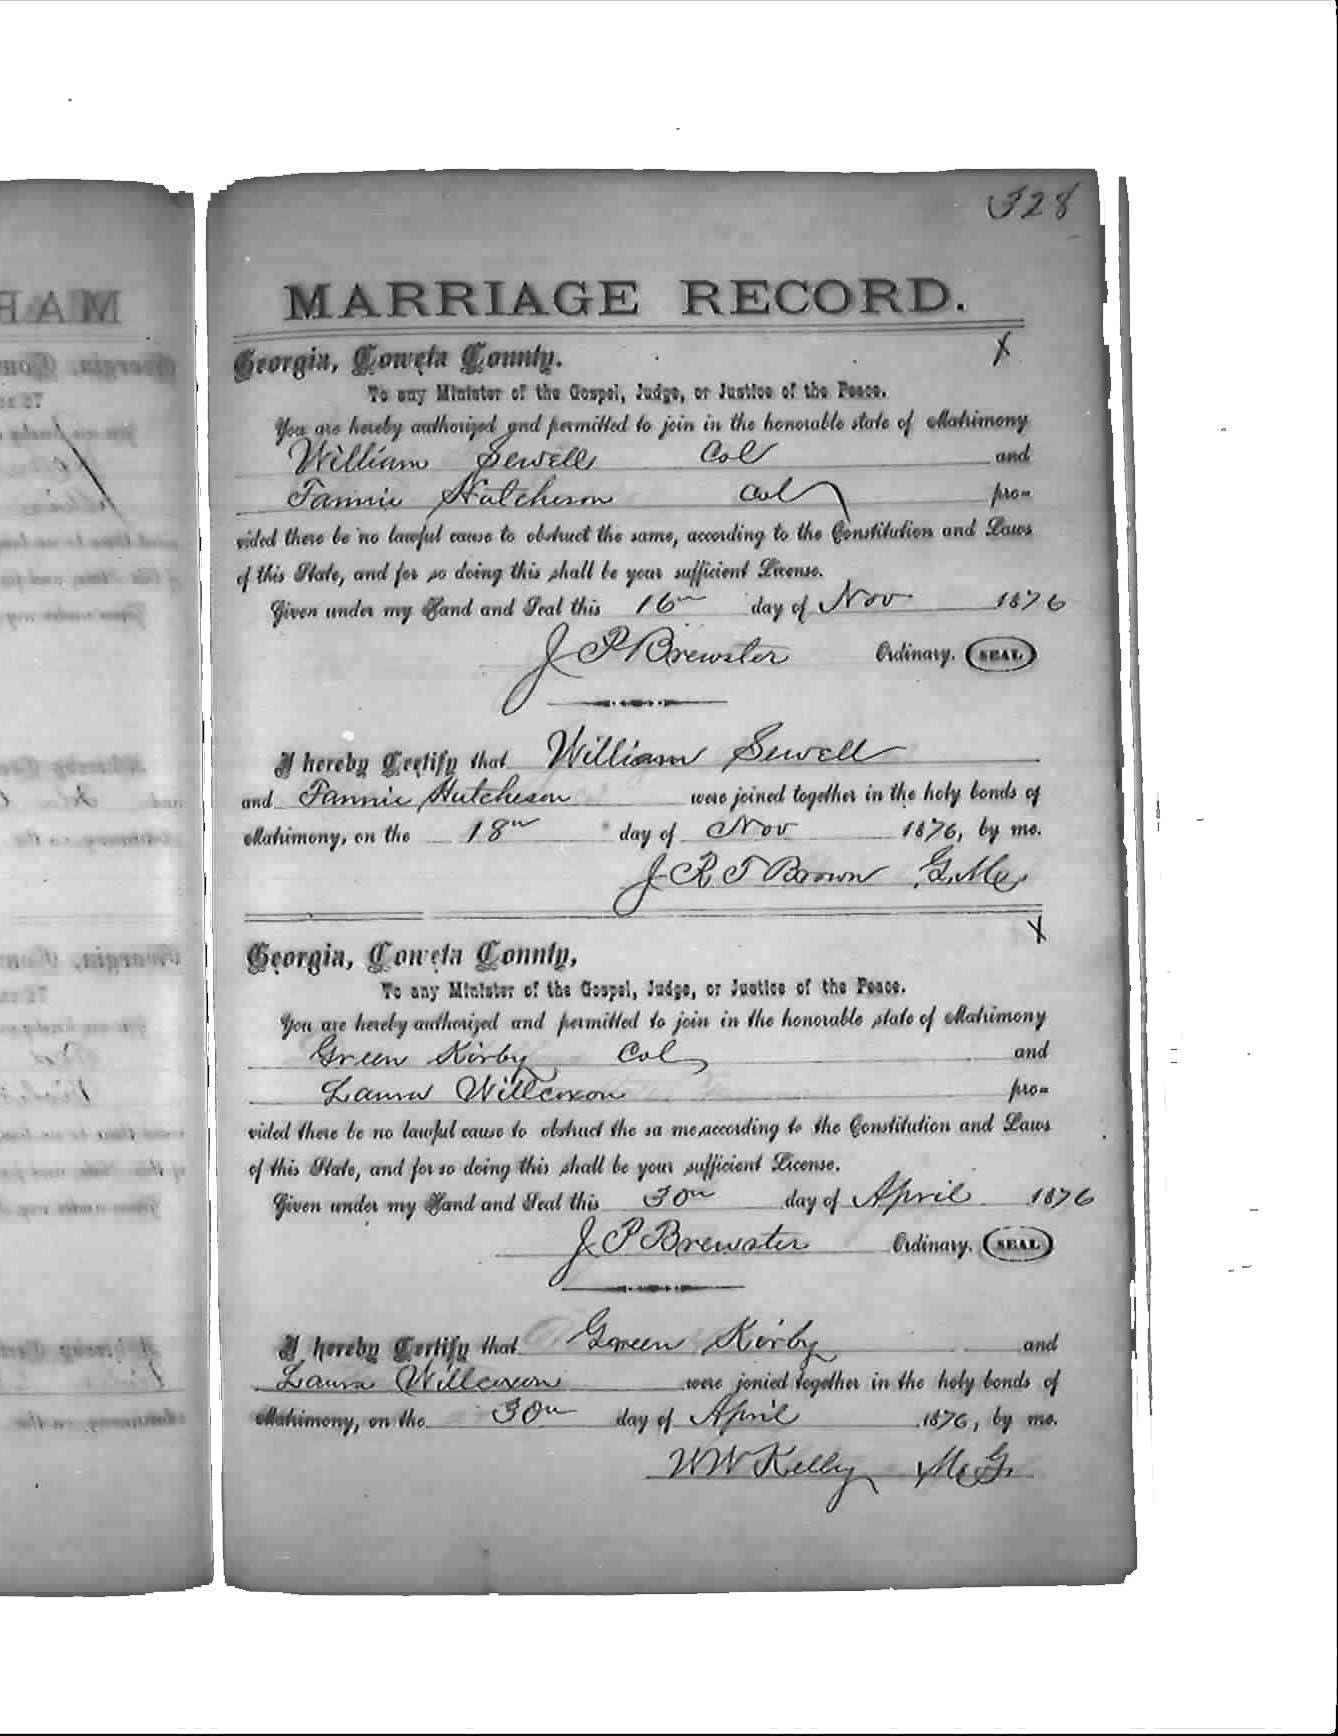 328
MARRIAGE RECORD.
Georgia, Coweta County. X
To any Minister of the Gospel, Judge, or Justice of the Peace.
You are hereby authorized and permitted to join in the honorable state of Matrimony
William Sewell Col and
Fannie Hutcheson Col pro=
vided there be no lawful cause to obstruct the same, according to the Constitution and Laws
of this State, and for so doing this shall be your sufficient License.
Given under my Hand and Seal this 16th day of Nov 1876
J P Brewster Ordinary. SEAL
I hereby Certify that William Sewell
and Fannie Hutcheson were joined together in the holy bonds of
Matrimony, on the 18th day of Nov 1876, by me.
J R T Brown G.M.
X
Georgia, Coweta County,
To any Minister of the Gospel, Judge, or Justice of the Peace.
You are hereby authorized and permitted to join in the honorable state of Matrimony
Green Kirby Col and
Laura Willcoxon pro=
vided there be no lawful cause to obstruct the sa me,according to the Constitution and Laws
of this State, and for so doing this shall be your sufficient License.
Given under my Hand and Seal this 30th day of April 1876
J P Brewster Ordinary. SEAL
I hereby Certify that Green Kirby and
Laura Willcoxon were jonied together in the holy bonds of
Matrimony, on the 30th day of April 1876, by me.
W W Kelly M.G.